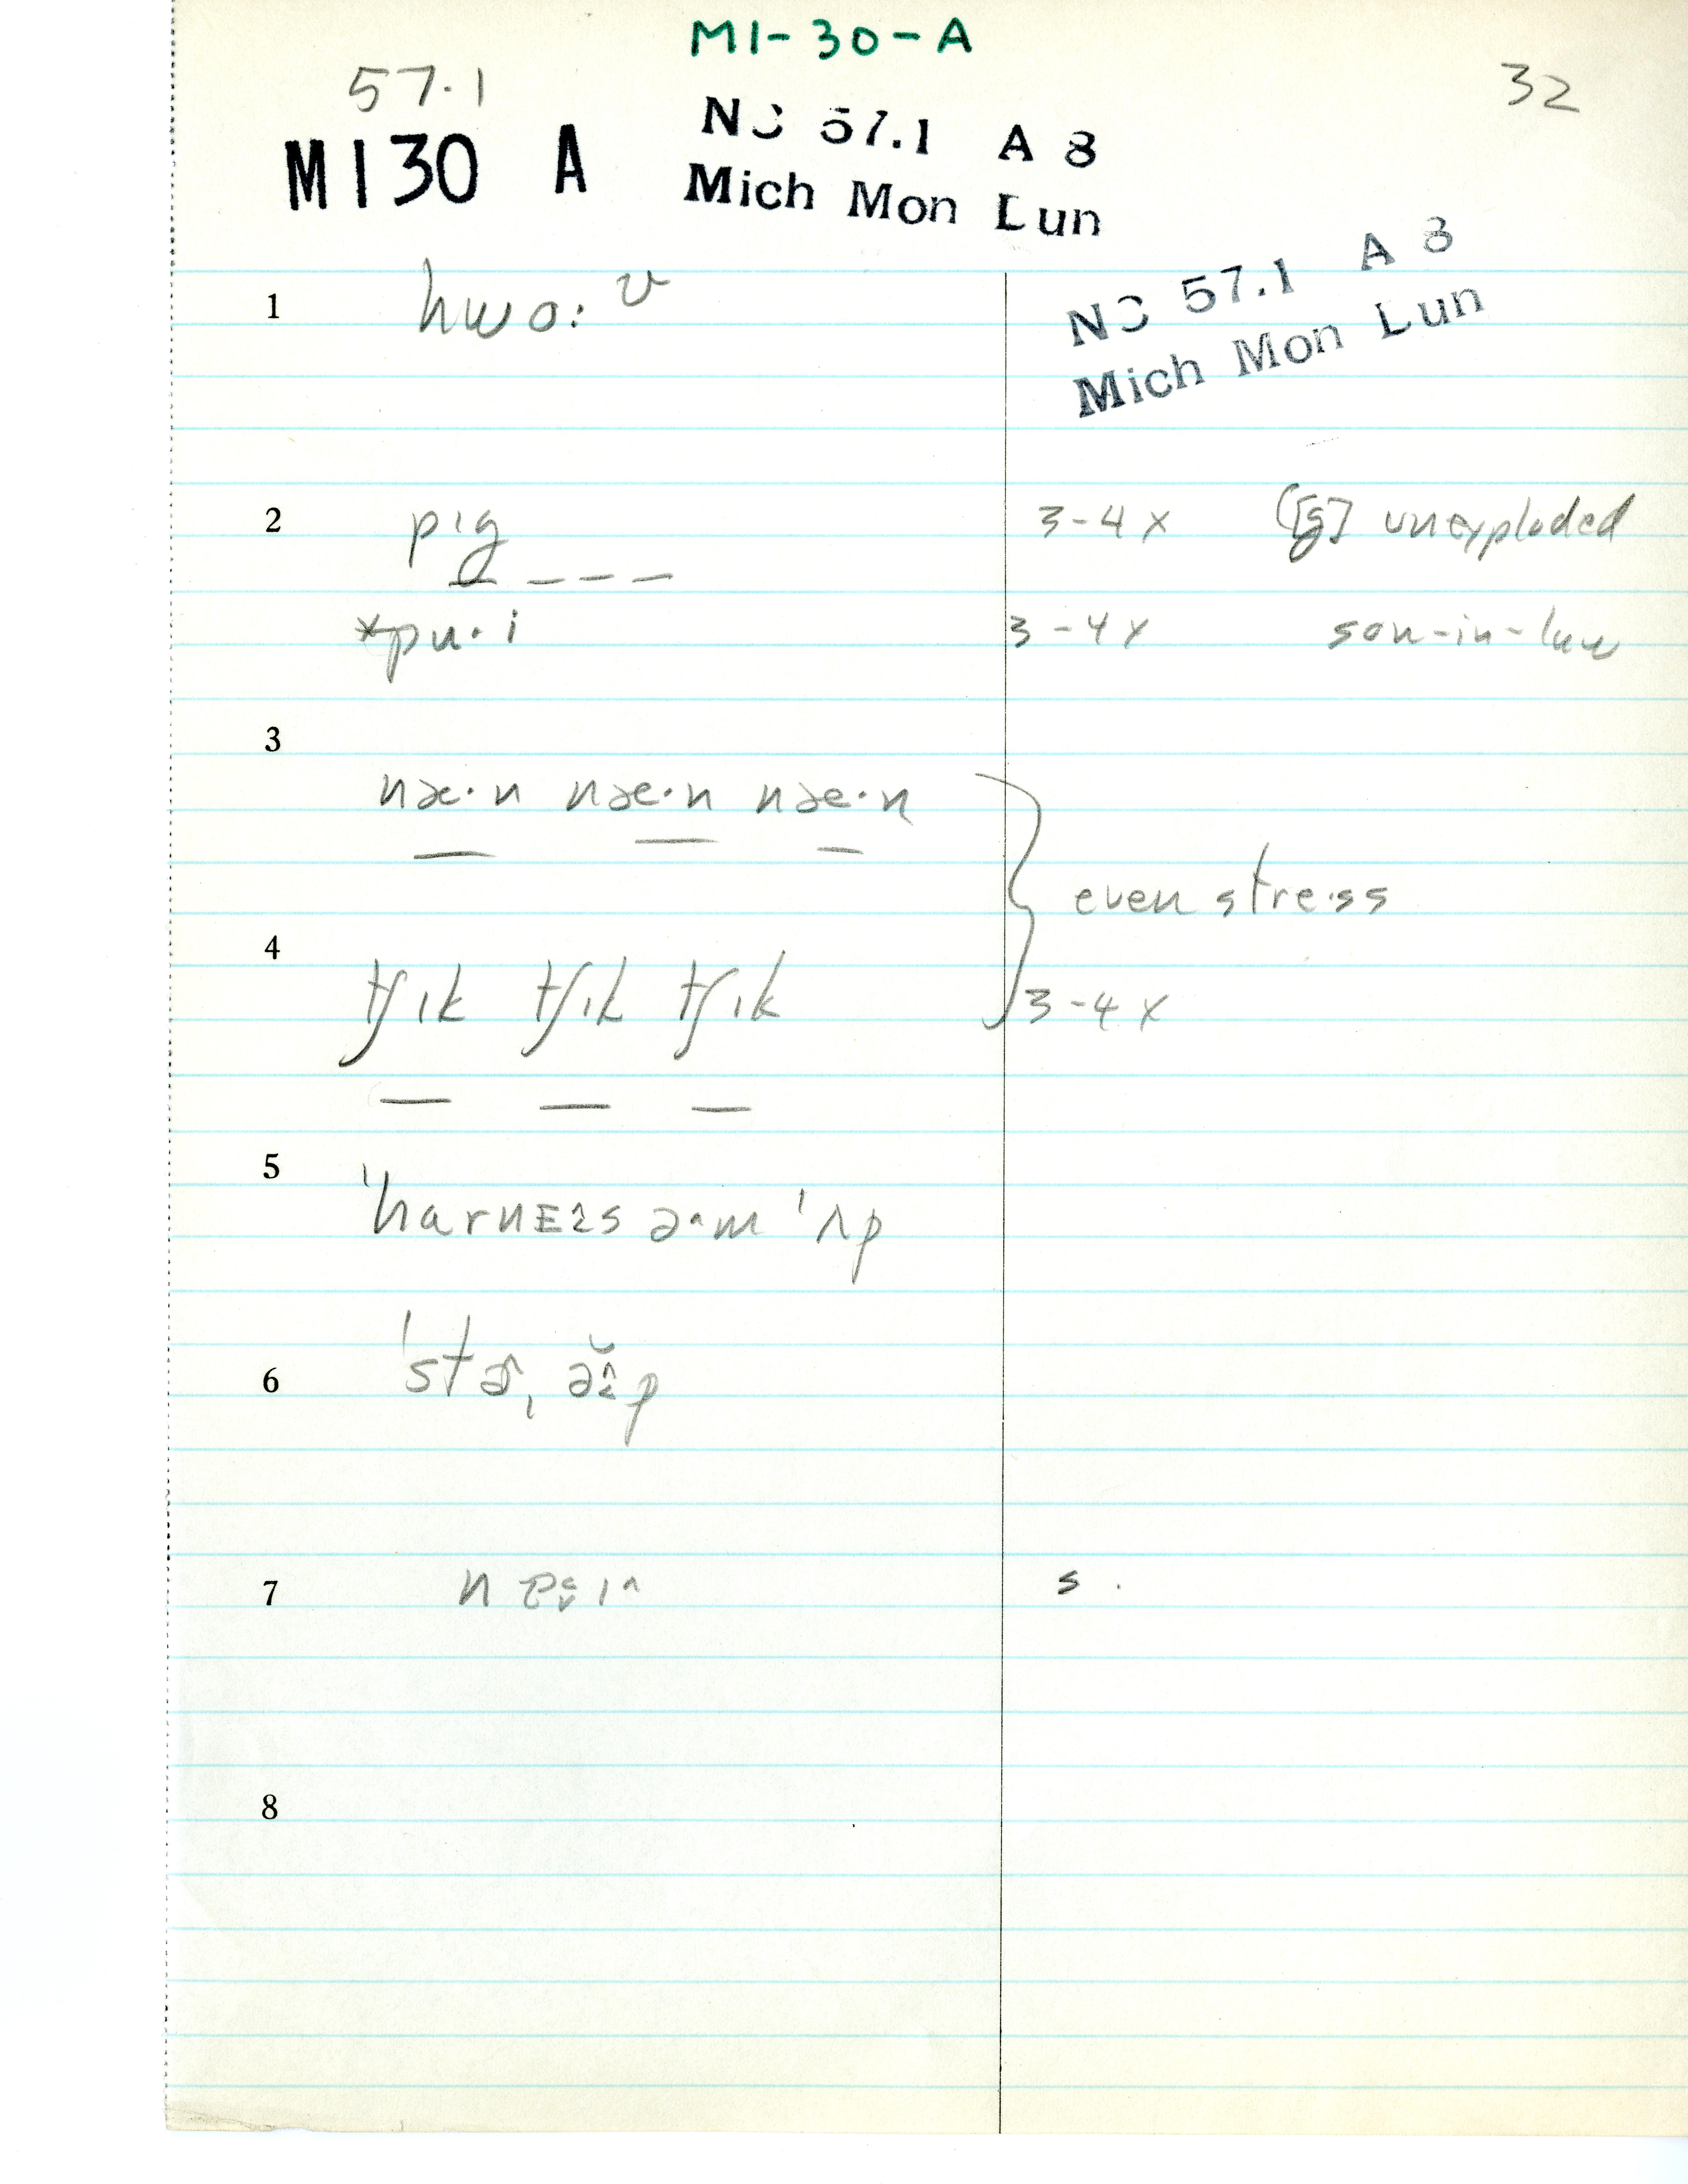 MI-30-A
57.1
32
MI30 A
NC 57.1 A 8
Mich Mon Lun
NC 57.1 A 8
Mich Mon Lun
1 hwo:ᶷ
2 pɪg 3-4x ([g] unexploded
*pu·i 3-4x son-in-law
3
næ·n næ·n næ·n
even stress
4
tʃɪk tʃɪk tʃɪk 3-4x
5
'harnɛɪs ə^m 'ʌp
6
7 s.
8